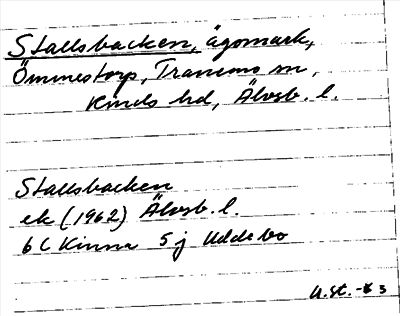 Stallsbacken, ägomark,
Ömmestorp, Tranemo sn,
Kinds hd, Älvsb. l.
Stallsbacken
ek (1962) Älvsb. l.
6 C Kinna 5 j Uddebo
U.St. - 3